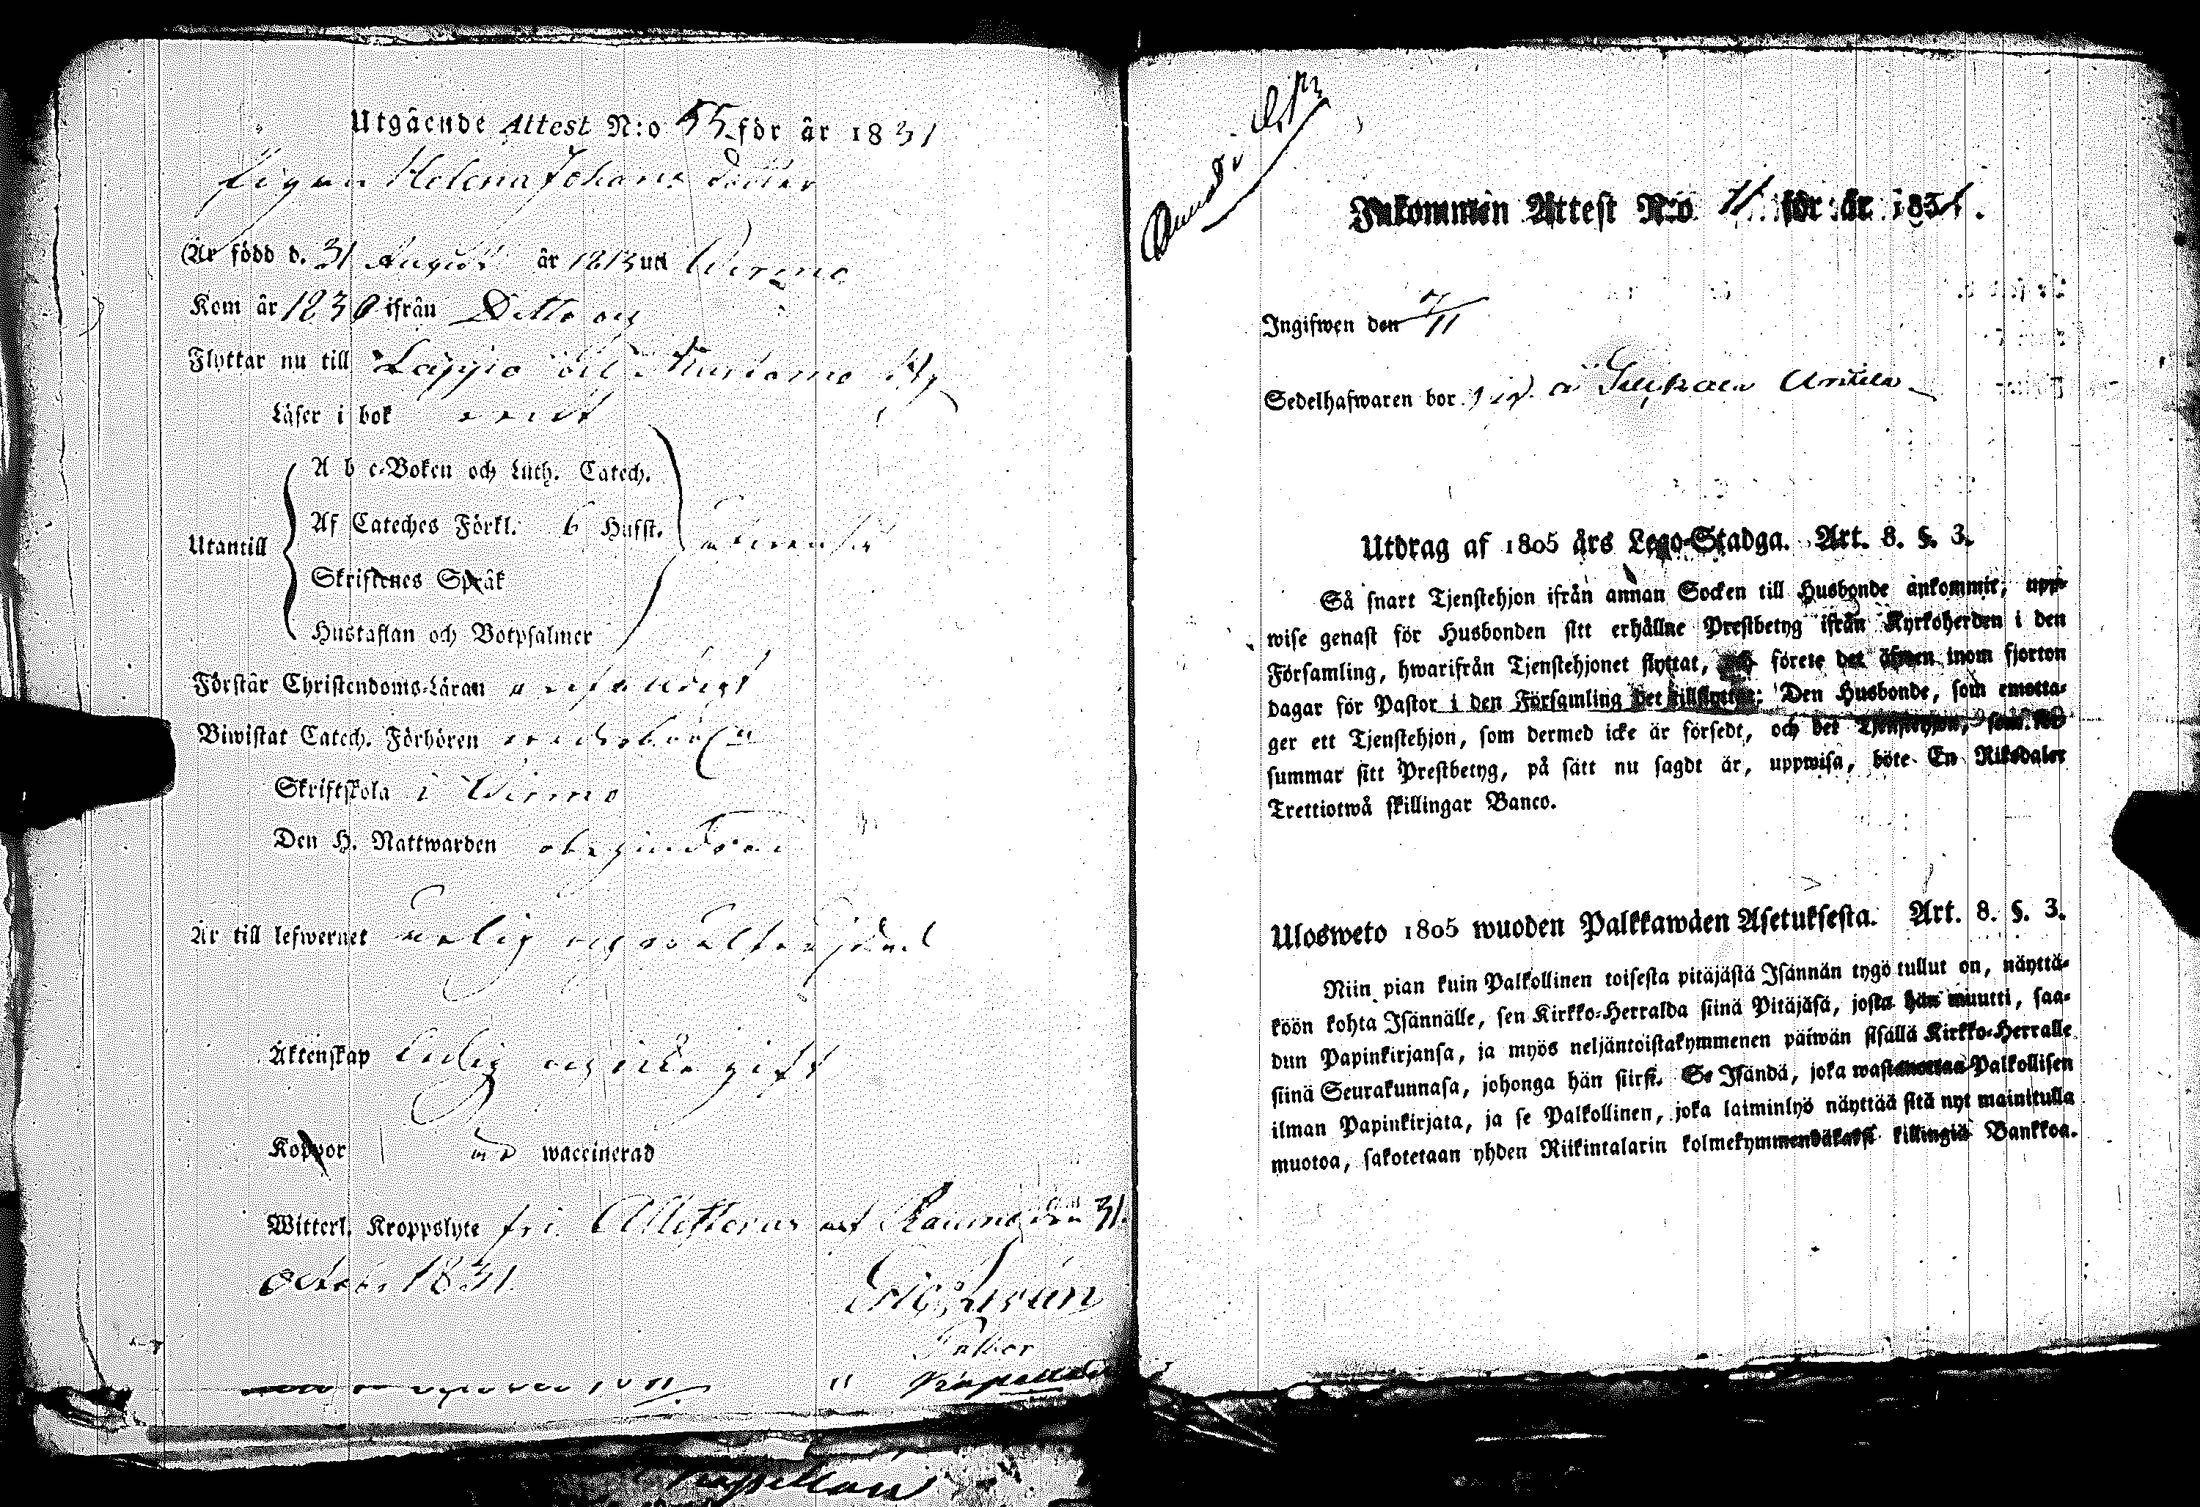 Utgående Attest N:o 55 för år 1831
Pigan Helena Johans dotter
Är född d. 31 August år 1813 uti Wirmo
Kom år 1830 ifrån Ditto och
Flyttar nu till Lappo och Kurtamo By
Läser i bok
A b c-Boken och Luth. Catech.
Af Cateches Förkl. 6 Hufst.
Utantill
Skriftenes Språk
Hustaflan och Botpsalmer
Förstår Christendoms-Läran
Biwistat Catech. Förhören
Skriftskola i Wirmo
Den H. Nattwarden obehindrad
Är till lefwernet ärlig och wälfrejdad
Äktenskap ledig och icke gift
Koppor waccinerad
Witterl. Kroppslyte fri. Attesteras af Raumo den 31.
October 1831.
Eric
Pastor
Capellan
Inkommen Attest N:o 11 för år 1831.
Ingifwen den 7/11
Sedelhafwaren bor
Utdrag af 1805 års Lego-Stadga. Art. 8. §. 3.
Så snart Tjenstehjon ifrån annan Socken till Husbonde ankommit, upp-
wise genast för Husbonden sitt erhållne Prestbetyg ifrån Kyrkoherden i den
Församling, hwarifrån Tjenstehjonet flyttat, och förete det äfwen inom fjorton
dagar för Pastor i den Församling det tillflyttat: Den Husbonde, som emotta-
ger ett Tjenstehjon, som dermed icke är försedt, och det Tjenstehjon, som för-
summar sitt Prestbetyg, på sätt nu sagdt är, uppwisa, böte En Riksdaler
Trettiotwå skillingar Banco.
Ulosweto 1805 wuoden Palkkawäen Asetuksesta. Art. 8. §. 3.
Niin pian kuin Palkollinen toisesta pitäjästä Isännän tygö tullut on, näyttä-
köön kohta Isännälle, sen Kirkko-Herralda siinä Pitäjäsä, josta hän muutti, saa-
dun Papinkirjansa, ja myös neljäntoistakymmenen päiwän sisällä Kirkko-Herralle
siinä Seurakunnasa, johonga hän siirsi. Se Isändä, joka wastanottaa Palkollisen
ilman Papinkirjata, ja se Palkollinen, joka laiminlyö näyttää sitä nyt mainitulla
muotoa, sakotetaan yhden Riikintalarin kolmekymmendäkaksi killingiä Bankkoa.